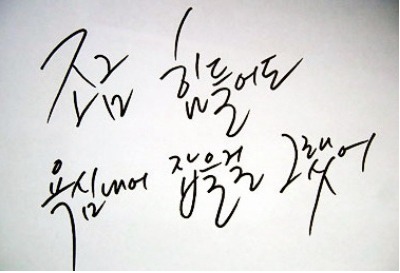 조금 힘들어도
욕심내어 잡을걸 그랬어